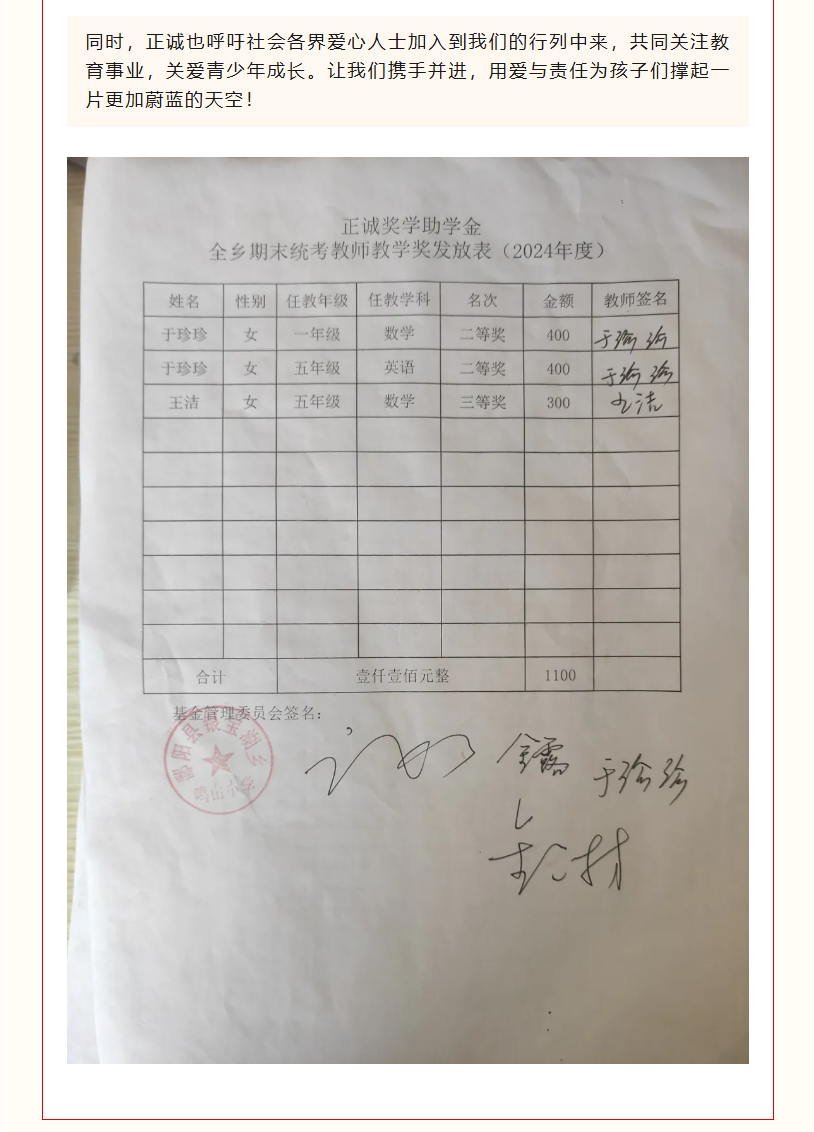 同时，正诚也呼吁社会各界爱心人士加入到我们的行列中来，共同关注教
育事业，关爱青少年成长。让我们携手并进，用爱与责任为孩子们撑起一
片更加蔚蓝的天空！
正诚奖学助学金
全乡期末统考教师教学奖发放表（2024年度）
姓名 性别 任教年级 任教学科 名次 金额 教师签名
于珍珍 女 一年级 数学 二等奖 400 于珍珍
于珍珍 女 五年级 英语 二等奖 400 于珍珍
王洁 女 五年级 数学 三等奖 300 王洁
合计 壹仟壹佰元整 1100
基金管理委员会签名：
鄱阳县银宝湖乡
鸣山小学
于珍珍